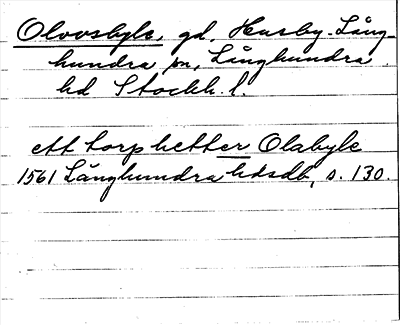 Olovsbyle, gd, Husby-Lång-
hundra sn, Långhundra
hd Stockh. l.
ett torp hetter Olabyle
1561 Långhundra hdsdb, s. 130.